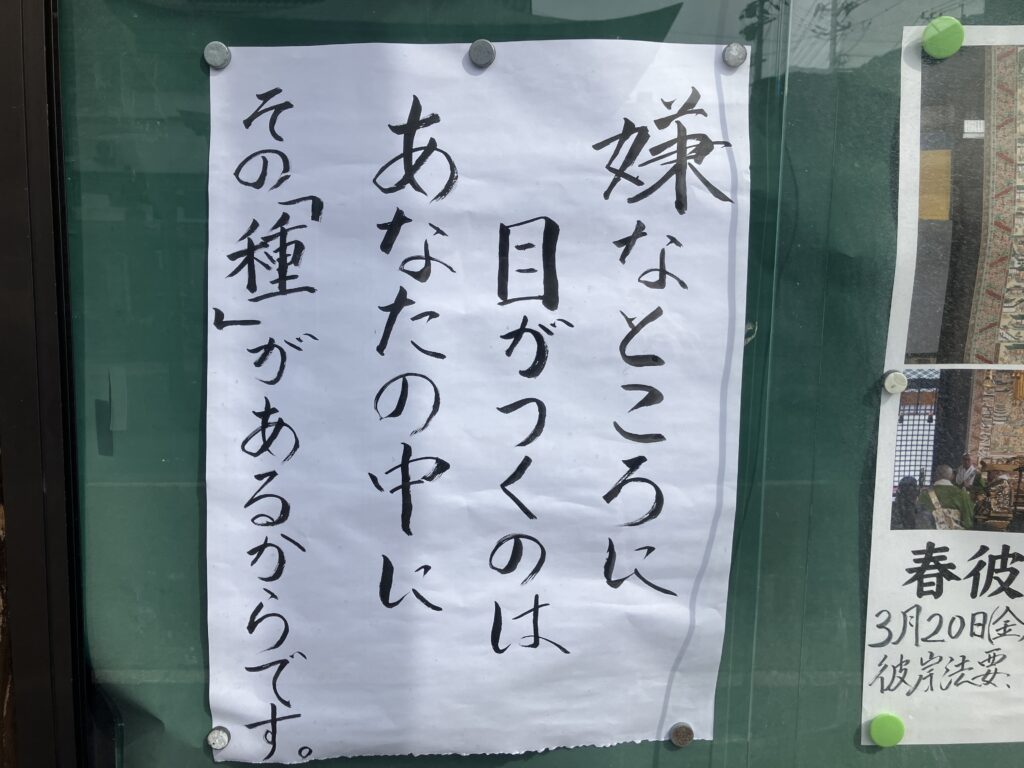 嫌なところに
目がつくのは
あなたの中に
その「種」があるからです。
春彼
3月20日(金)
彼岸法要